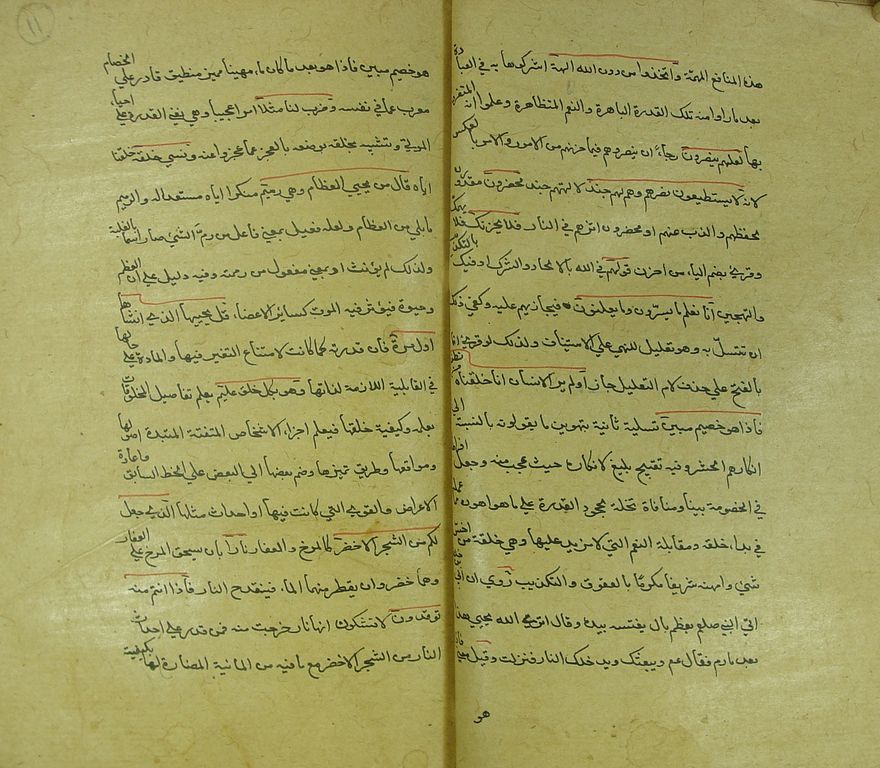 هذه المنافع المهمة واتخذوا من دون الله الهة اشركوها به في العبادة
بعد ما راوا منه تلك القدرة الباهرة والنعم المتظاهرة وعلموا انه المتفرد
بها لعلهم ينصرون رجاء ان ينصروهم فيما حزبهم من الامور والامر بالعكس
لانه لا يستطيعون نصرهم وهم لهم جند لالهتهم جند محضرون معدون
لحفظهم والذب عنهم او محضرون اثرهم في النار فلا يحزنك فلا يهمك
وقرئ بضم الياء من احزن قولهم في الله بالالحاد والشرك او فيك بالتكذيب
والتهجين انا نعلم ما يسرون وما يعلنون فيجازيهم عليه وكفى ذلك
ان تتسلى به وهو تعليل للنهي على الاستيناف ولذلك لو قرئ انا
بالفتح على حذف لام التعليل جاز اولم ير الانسان انا خلقناه من نطفة
فاذا هو خصيم مبين تسلية ثانية بتهوين ما يقولونه بالنسبة الى
انكارهم الحشر وفيه تقبيح بليغ لانكاره حيث عجب منه وجعله افراطا
في الخصومة بينا ومنافاة لجحود القدرة على ما هو اهون مما عمله
في بدء خلقه ومقابلة النعم التي لا مزيد عليها وهي خلقه من اخس
شيء وامهنه شريفا مكرما بالعقوق والتكذيب روي ان ابي بن خلف
اتى النبي صلعم بعظم بال يفتته بيده وقال اترى الله يحيي هذا
بعد ما رم فقال نعم ويبعثك ويدخلك النار فنزلت وقيل معنى فاذا
هو
١١
هو خصيم مبين فاذا هو بعد ما كان ماء مهينا مميز منطيق قادر على الخصام
معرب عما في نفسه وضرب لنا مثلا امرا عجيبا وهي نفي القدرة على احياء
الموتى وتشبيه بخلقه بوصفه بالعجز عما عجزوا عنه ونسي خلقه خلقنا
اياه قال من يحيي العظام وهي رميم منكرا اياه مستبعدا له والرميم
ما بلي من العظام ولعله فعيل بمعنى فاعل من رم الشيء صار اسما بالغلبة
ولذلك لم يؤنث او بمعنى مفعول من رممته وفيه دليل على ان العظم
ذو حيوة فيؤثر فيه الموت كساير الاعضاء قل يحييها الذي انشاها
اول مرة فان قدرته كما كانت لامتناع التغير فيها والمادة على حالها
في القابلية اللازمة لذاتها وهو بكل خلق عليم يعلم تفاصيل المخلوقات
بعلمه وكيفية خلقها فيعلم اجزاء الاشخاص المتفتتة المتبددة اصولها
ومواقعها وطريق تميزها وضم بعضها الى البعض على النمط السابق واعادة
الاعراض والقوى التي كانت فيها او احداث مثلها الذي جعل
لكم من الشجر الاخضر كالمرخ والعفار نارا بان يسحق المرخ على العفار
وهما خضراوان يقطر منهما الماء فينقدح النار فاذا انتم منه
توقدون لا تشكون انها نار خرجت منه فمن قدر على احداث
النار من الشجر الاخضر مع ما فيه من المائية المضادة لها بكيفيته